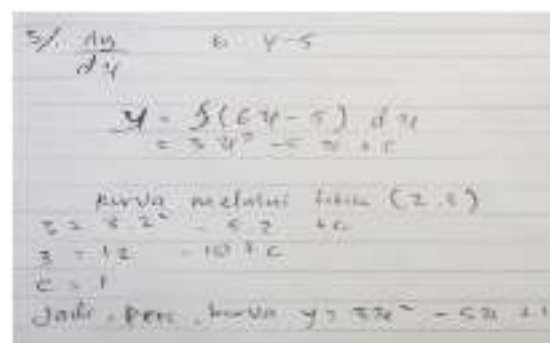 5/. dy/dx = 6x-5
y = ∫(6x-5) dx
= 3x² - 5x + c
kurva melalui titik (2,3)
3 = 3.2² - 5.2 + c
3 = 12 - 10 + c
c = 1
Jadi, pers. kurva y = 3x² - 5x + 1